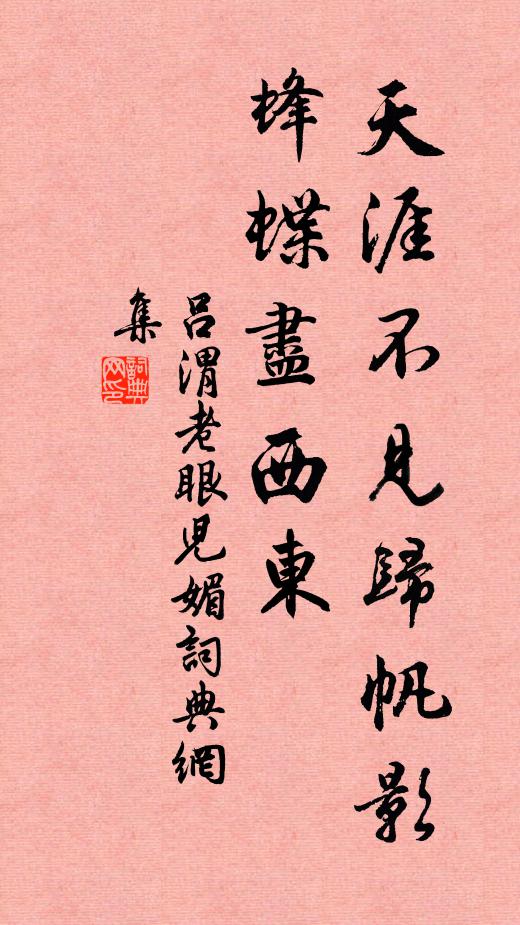 天涯不見歸帆影
蜂蝶盡西東
呂渭老眼兒媚詞典網
集
詞典
网印